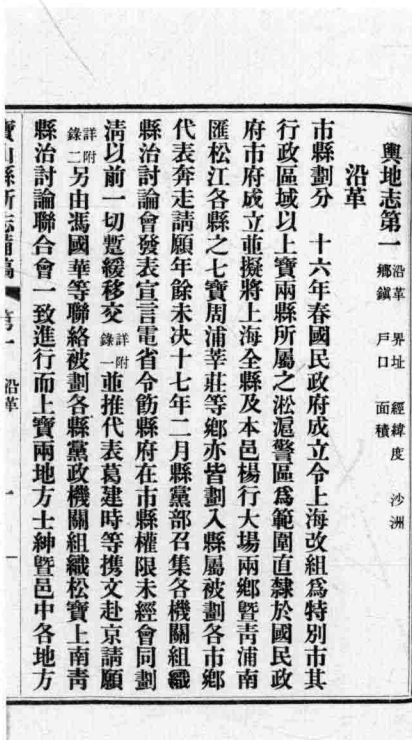 輿地志第一
沿革 界址 經緯度 沙洲
鄉鎮 戶口 面積
沿革
市縣劃分 十六年春國民政府成立令上海改組爲特別市其
行政區域以上寶兩縣所屬之淞滬警區爲範圍直隸於國民政
府市府成立並擬將上海全縣及本邑楊行大場兩鄉暨青浦南
匯松江各縣之七寶周浦莘莊等鄉亦皆劃入縣屬被劃各市鄉
代表奔走請願年餘未決十七年二月縣黨部召集各機關組織
縣治討論會發表宣言電省令飭縣府在市縣權限未經會同劃
清以前一切暫緩移交詳附錄一並推代表葛建時等携文赴京請願
詳附錄二另由馮國華等聯絡被劃各縣黨政機關組織松寶上南青
縣治討論聯合會一致進行而上寶兩地方士紳暨邑中各地方
寶山縣新志備稿 第一 沿革 一